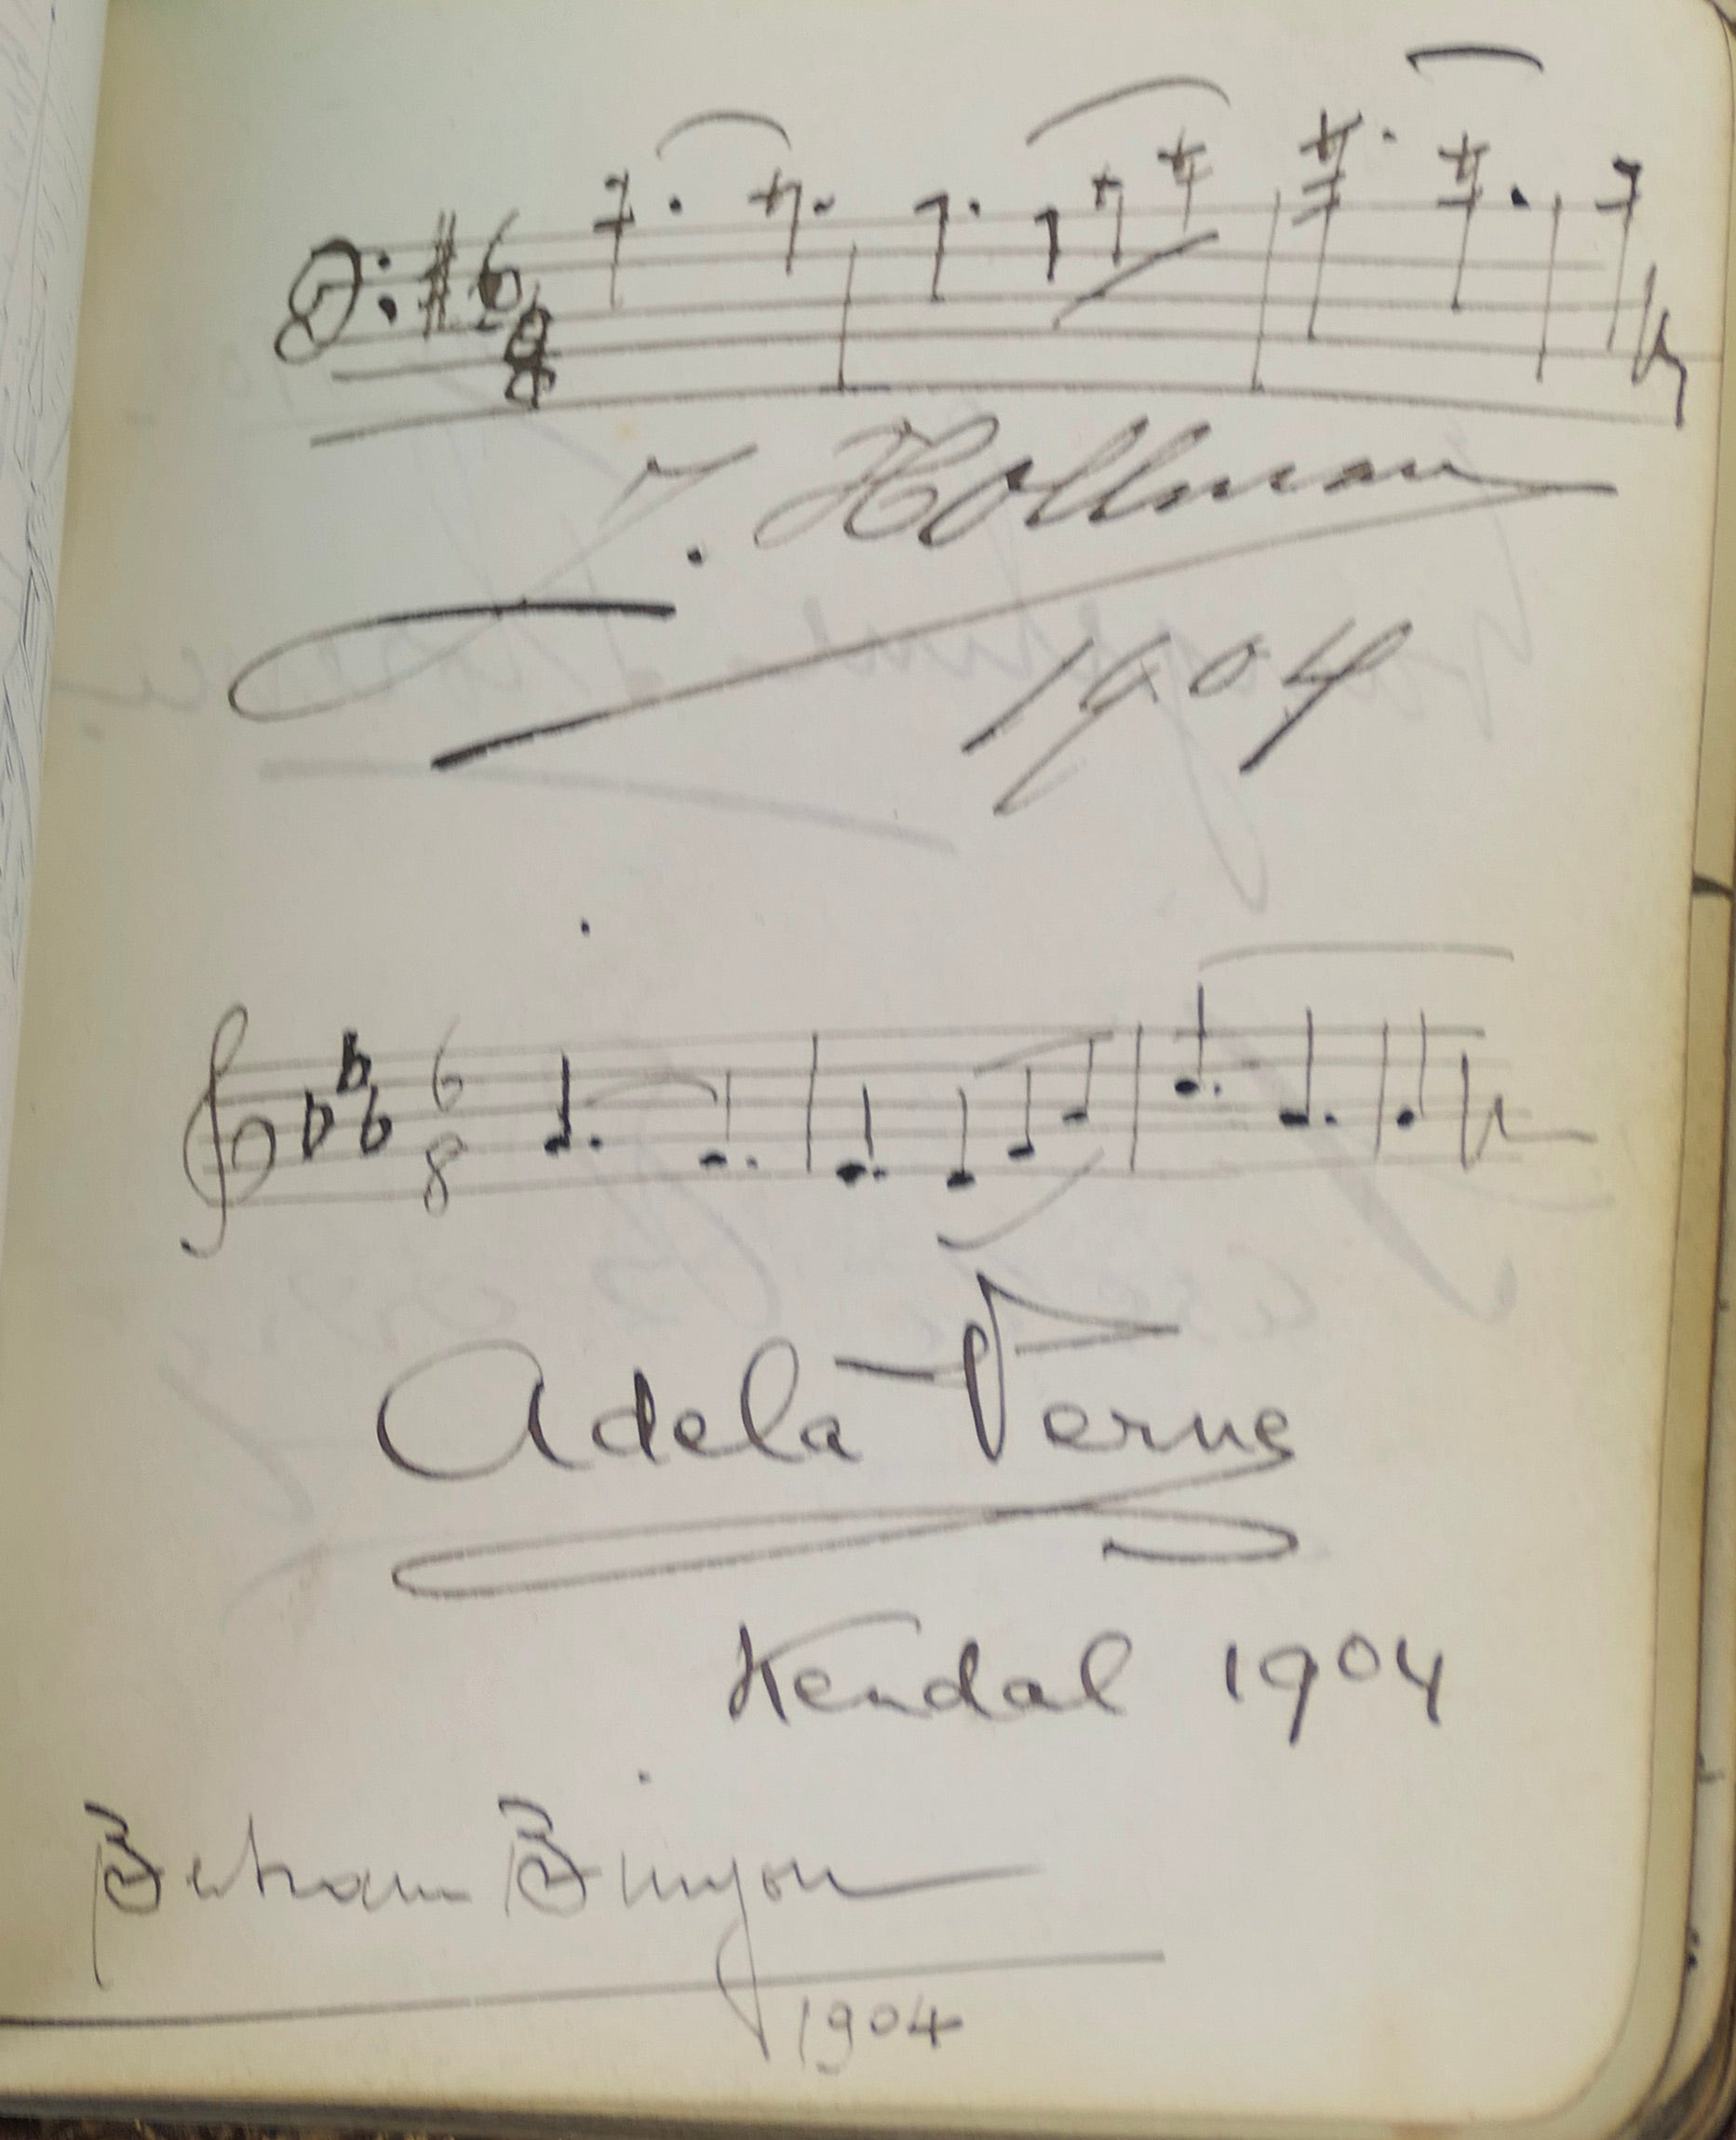 6
8
J. Hollman
1904
6
8
Adela Verne
Kendal 1904
Bertram Binyon
1904